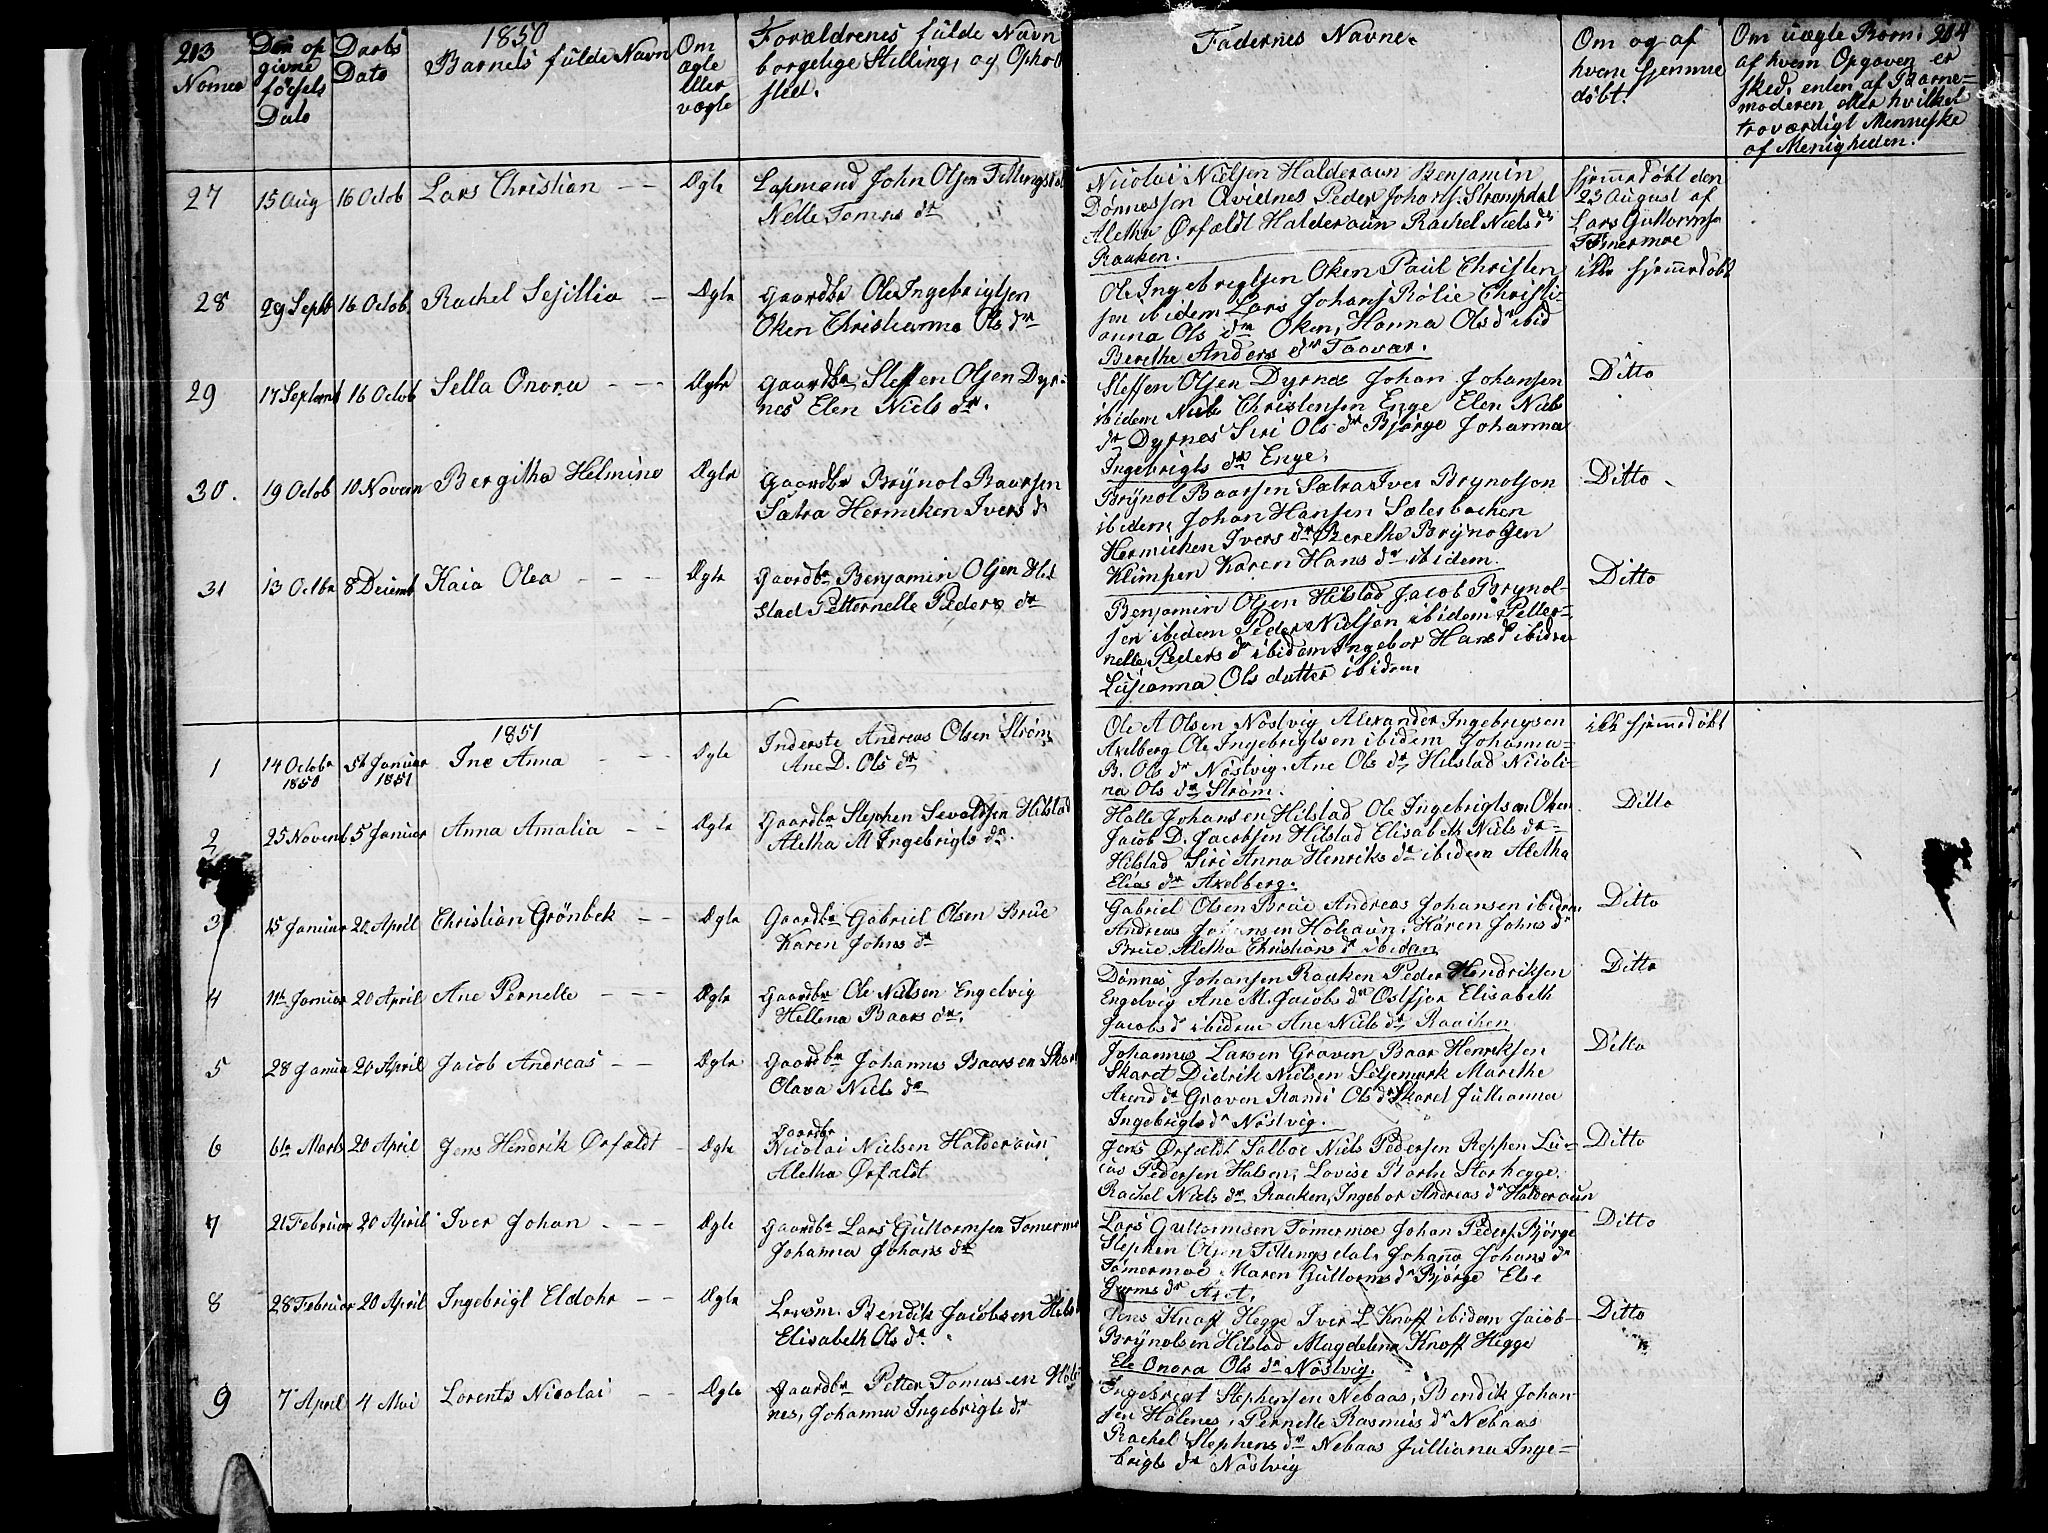 213
1850
214
Nomer
Den op
givne
føsels
Dato
Daabs
Dato
Barnets fulde Navn
Om
ægte
eller
uægte
Forældrenes fulde Navn
borgelige Stilling, og Ophol
sted.
Fadernes Navne.
Om og af
hvem hjemme
døbt!
Om uægte Børn,
af hvem Opgaven er
sked, enten af Barne=
moderen eller hvilket
troværdigt Menneske
af Menigheden.
27 15 Aug 16 Octob Lars Christian - - Ægte
Lapmand John Olsen Tettingsdal
Nelle Tomas dr
Nicolai Nielsen Halderaun Benjamin
Dønnessen Qviđnes Peder Johans. Strompdal
Aletha Ørfaldt Halderaun Rachel Niels dr
Raaken.
hjemedøbt den
23 August af
Lars Guttormsn
Tømermoe
28 29 Septb 16 Octob. Rachel Sesillia - Ægte
Gaardbr Ole Ingebrigtsen
Oken Christianna Ols dr
Ole Ingebrigtsen Oken Paul Christen
sen ibidem Lars Johans Rølie Christi-
anna Ols dr Oken, Hanna Ols dr ibid
Berethe Anders dr Taavær.
ikke hjemedøbt
29 17 Septemb 16 Octob Sella Onora - - - Ægte
Gaardbr Steffen Olsen Dyr-
nes Elen Niels dr.
Steffen Olsen Dyrnes Johan Johansen
ibidem Niels Christensen Enge Elen Niels
dr Dyrnes Siri Ols dr Bjørge Johanna
Ingebrigts dr Enge.
Ditto
30. 19 Octob 10 Novem Bergitha Helmine Ægte
Gaardbr Brynol Baarsen
Sætra Hermiken Ivers dr
Brynol Baarsen Sætra Iver Brynolson
ibidem, Johan Hansen Sælesbachen
Hermichen Ivers dr Berethe Brynolsen
Klimpen Karen Hans dr ibidem.
Ditto
31 13 Octbr 8 Decemb Kaia Olea - - - Ægte
Gaardbr Benjamin Olsen Hil
stad Petternelle Peders dr
Benjamin Olsen Hilstad Jacob Brynol-
sen ibidem Peder Nielsen ibidem Petter-
nelle Peders dr ibidem Ingebor Hans dr ibidem
Lusianna Ols datter ibidem
Ditto
1851
1 14 Octobr 1850 5te Januar 1851 Ine Anna - - Ægte
Inderste Andreas Olsen Strøm
Ane D. Ols dr
Ole A Olsen Nøstvig Alexander Ingebrigsen
Axelberg Ole Ingebrigtsen ibidem Johanna-
B. Ols dr Nøstvig. Ane Ols dr Hilstad Nicoli-
na Ols dr Strøm.
ikk hjemedøbt
2 25 Novemb. 5 Januar Anna Amalia - - Ægte
Gaardbr Stephen Sevaldsen Hilstad
Aletha M Ingebrigts dr.
Halle Johansen Hilstad Ole Ingebrigtsen Oken.
Jacob D. Jacobsen Hilstad Elisabeth Niels dr
Hilstad Siri Anna Henriks dr ibidem Aletha
Elias dr Axelberg.
Ditto
3 15 Januar 20 April Christian Grönbek - - Ægte
Gaardbr Gabriel Olsen Brue
Karen Johns dr
Gabriel Olsen Brue Andreas Johansen ibidem
Andreas Johansen Holiaun, Karen Johns dr
Brue Aletha Christians dr ibidem
Ditto
4 11te Januar 20 April Ane Pernelle - - - Ægte
Gaardbr Ole Nilsen Engelvig
Hellena Baars dr.
Dønnes Johansen Raaken Peder Hendriksen
Engelvig Ane M. Jacobs dr Ostfjor Elisabeth
Jacobs dr ibidem Ane Niels dr Raaken
Ditto
5 28 Janua 20 April Jacob Andreas - - Ægte
Gaardbr Johannes Baarsen Skaret
Olava Niels dr
Johannes Larsen Graven Baar Henriksen
Skaret Didrik Nielsen Seljemark Marethe
Arend dr Graven Randi Ols dr Skaret Jullianna
Ingebrigts dr Nøstvig.
Ditto
6 6te Marts 20 April Jens Hendrik Ørfaldt - Ægte
Gaardbr
Nicolai Nielsen Halderaun
Aletha Ørfaldt
Jens Ørfaldt Salboe Niels Pedersen Reppen Lu-
cas Pedersen Halsen, Lovise Storhegge.
Rachel Niels dr Raaken, Ingebor Andreas dr Halderaun
Ditto
7 21 Februar 20 April Iver Johan - - - Ægte
Gaardbr Lars Guttormsen Tømerm
Johanna Johans dr
Lars Guttormsen Tømermoe Johan Peders. Bjørge
Stephen Olsen Tettingsdal, Johana Johans dr
Tømermoe Maren Guttorms dr Bjørge Else
Gorms dr Aret.
Ditto
8 28 Februar 20 April Ingebrigt Eldohr - - Ægte
Bendik Jacobsen Hilst
Elisabeth Ols dr
Jens Knoff Hegge Iver L Knoff ibidem Jacob-
Brynolsen Hilstad Magdelena Knoff Hegge
Ele Onora Ols dr Nøstvig
Ditto
9 7 April 4 Mai Lorents Nicolai - - Ægte
Gaardbr Petter Tomasen Høle
nes, Johanna Ingebrigts dr
Ingebrigt Stephensen Nebaas, Bendik Johan
sen Hølenes, Pernelle Rasmus dr Nebaas
Rachel Stephens dr Nebaas Julliana Inge-
brigts dr Nøstvig